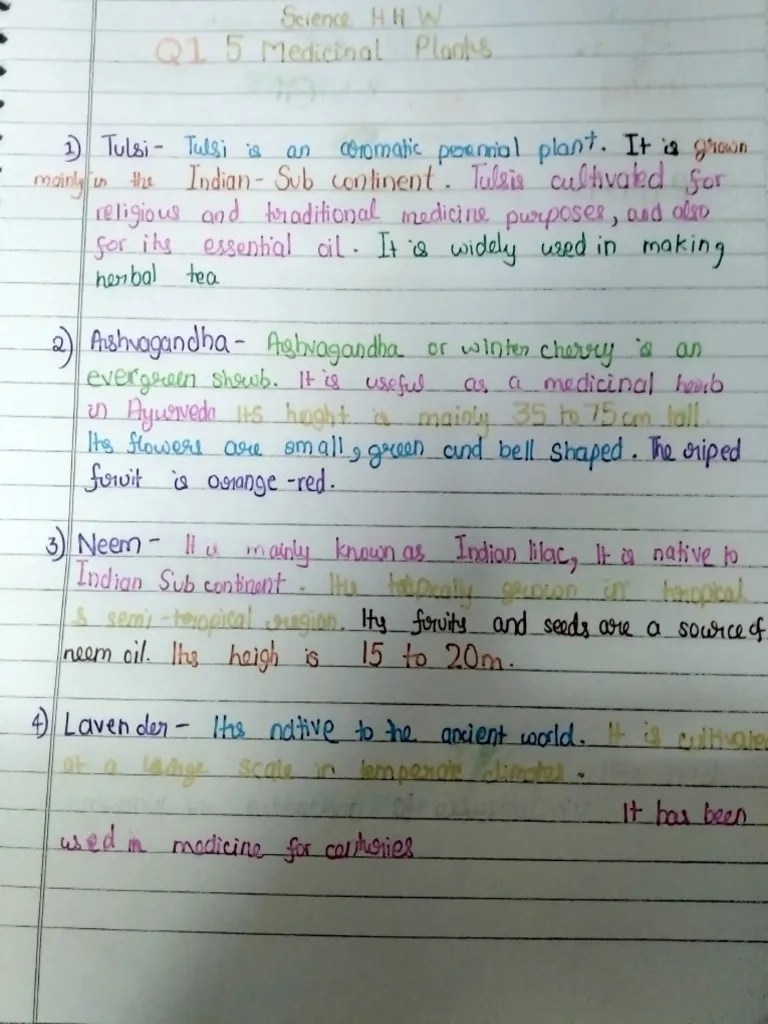 Science HHW
Q1 5 Medicinal Plants
1) Tulsi- Tulsi is an aromatic perennial plant. It is grown
mainly in the Indian-Sub continent. Tulsi is cultivated for
religious and traditional medicine purposes, and also
for its essential oil. It is widely used in making
herbal tea
2) Ashvagandha- Ashvagandha or winter cherry is an
evergreen shrub. It is useful as a medicinal herb
in Ayurveda Its height is mainly 35 to 75cm tall.
Its flowers are small, green and bell shaped. The riped
fruit is orange-red.
3) Neem- It is mainly known as Indian lilac, It is native to
Indian Sub continent. Its typically grown in tropical
& semi-tropical region. Its fruits and seeds are a source of
neem oil. Its heigh is 15 to 20m.
4) Lavender- Its native to the ancient world. It is cultivated
at a large scale in temperate climates.
It has been
used in medicine for centuries